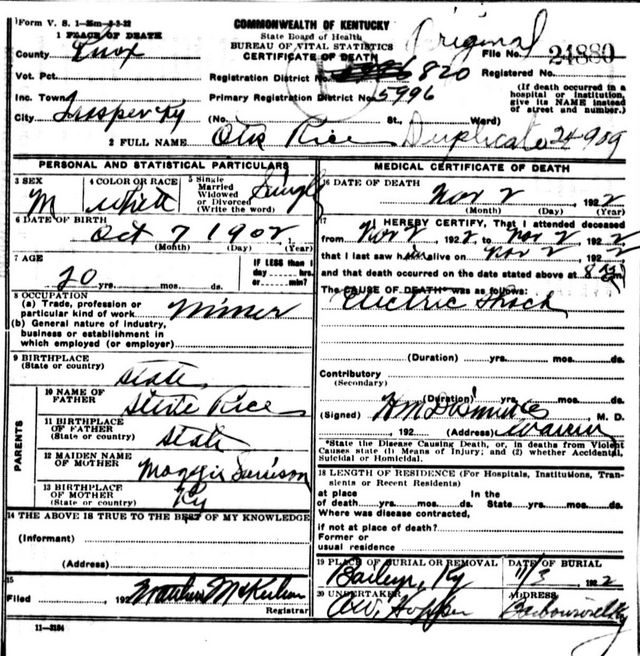 Form V. S. 1—35m—8-3-22
COMMONWEALTH OF KENTUCKY
State Board of Health
BUREAU OF VITAL STATISTICS
CERTIFICATE OF DEATH
Original
File No. 24880
1 PLACE OF DEATH
County Knox
Vot. Pct.
Registration District No. 820
Registered No.
Inc. Town
Primary Registration District No. 5996
(If death occurred in a hospital or institution, give its NAME instead of street and number.)
City Trosper Ky (No. St., Ward)
2 FULL NAME Otis Rice Duplicate 24909
PERSONAL AND STATISTICAL PARTICULARS
3 SEX M
4 COLOR OR RACE White
5 Single Married Widowed or Divorced (Write the word) Single
6 DATE OF BIRTH Oct 7 1902
(Month) (Day) (Year)
7 AGE 20 yrs. mos. ds.
IF LESS than 1 day hrs. or min.?
8 OCCUPATION
(a) Trade, profession or particular kind of work Miner
(b) General nature of industry, business or establishment in which employed (or employer)
9 BIRTHPLACE (State or country) State
PARENTS
10 NAME OF FATHER Steve Rice
11 BIRTHPLACE OF FATHER (State or country) State
12 MAIDEN NAME OF MOTHER Maggie
13 BIRTHPLACE OF MOTHER (State or country) Ky
14 THE ABOVE IS TRUE TO THE BEST OF MY KNOWLEDGE
(Informant)
(Address)
15 Filed , 192
Registrar
11—3184
MEDICAL CERTIFICATE OF DEATH
16 DATE OF DEATH Nov 2 , 1922
(Month) (Day) (Year)
17 I HEREBY CERTIFY, That I attended deceased
from Nov 2 1922 to Nov 2 , 1922
that I last saw him alive on Nov 2 , 1922
and that death occurred on the date stated above at 8 m.
The CAUSE OF DEATH* was as follows:
Electric Shock
(Duration) yrs. mos. ds.
Contributory
(Secondary)
(Duration) yrs. mos. ds.
(Signed) , M. D.
, 192 (Address) Warren
*State the Disease Causing Death, or, in deaths from Violent Causes state (1) Means of Injury; and (2) whether Accidental, Suicidal or Homicidal.
18 LENGTH OF RESIDENCE (For Hospitals, Institutions, Transients or Recent Residents)
at place of death yrs. mos. ds. In the State yrs. mos. ds.
Where was disease contracted,
if not at place of death?
Former or usual residence
19 PLACE OF BURIAL OR REMOVAL Ky
DATE OF BURIAL 11/3 1922
20 UNDERTAKER Hopper
ADDRESS Barbourville Ky